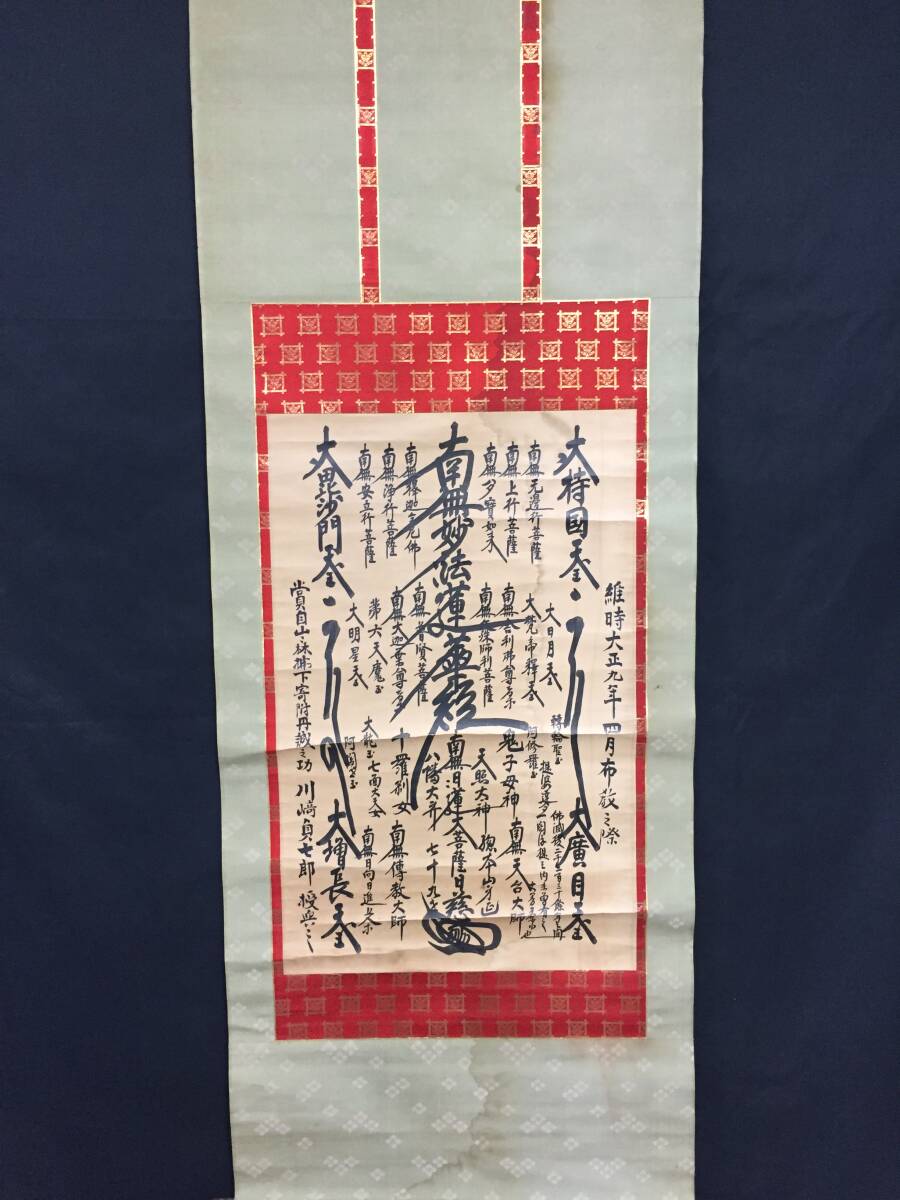 維時大正九年四月布教之際
大持国天王
大廣目天王
南無无邊行菩薩
南無上行菩薩
南無多寳如来
大日月天王
大梵帝釋天王
南無舎利弗尊者等
南無文殊師利菩薩
轉輪聖王
阿修羅王
鬼子母神
天照大神
佛滅後二千二百三十餘年之間
南無天台大師
南無妙法蓮華経
南無日蓮大菩薩
日慈
七十九
八幡大菩薩
南無釋迦牟尼佛
南無浄行菩薩
南無安立行菩薩
南無普賢菩薩
南無大迦葉尊者等
第六天魔王
大明星天王
十羅刹女
大龍王
七面大天女
阿闍世王
南無傳教大師
大毘沙門天王
大増長天王
賞自山
下寄附丹誠之功
川﨑貞七郎
授與之